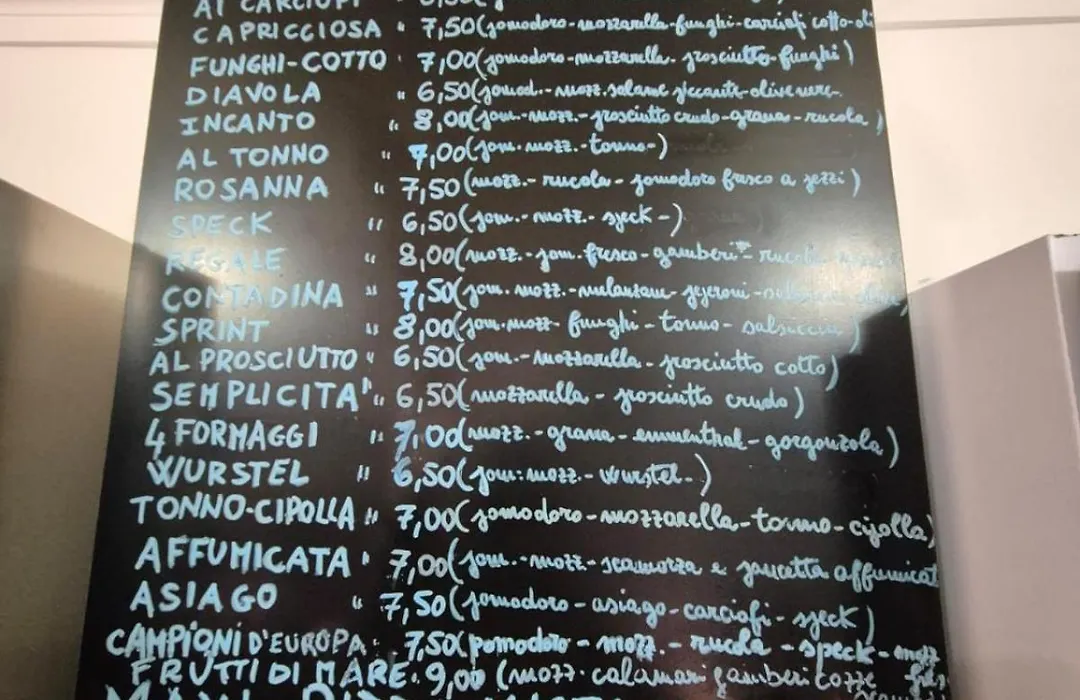 AI CARCIOFI
CAPRICCIOSA " 7,50 (pomodoro-mozzarella-funghi-carciofi cotto-oli
FUNGHI-COTTO " 7,00 (pomodoro-mozzarella-prosciutto-funghi)
DIAVOLA " 6,50 (pomod.-mozz.salame piccante-olive nere-
INCANTO " 8,00 (pom.-mozz.-prosciutto crudo-grana-rucola)
AL TONNO " 7,00 (pom.mozz.-tonno-)
ROSANNA " 7,50 (mozz.-rucola-pomodoro fresco a pezzi)
SPECK " 6,50 (pom.-mozz.-speck-)
REGALE " 8,00 (mozz.-pom.fresco-gamberi-rucola
CONTADINA " 7,50 (pom.mozz.-melanzane-peperoni-
SPRINT " 8,00 (pom.mozz-funghi-tonno-salsiccia)
AL PROSCIUTTO " 6,50 (pom.-mozzarella-prosciutto cotto)
SEMPLICITA' " 6,50 (mozzarella-prosciutto crudo)
4 FORMAGGI " 7,00 (mozz.-grana-emmenthal-gorgonzola)
WURSTEL " 6,50 (pom.mozz.-wurstel-)
TONNO-CIPOLLA " 7,00 (pomodoro-mozzarella-tonno-cipolla)
AFFUMICATA " 7,00 (pom.-mozz-scamorza e pancetta affumicat
ASIAGO " 7,50 (pomodoro-asiago-carciofi-speck)
CAMPIONI D'EUROPA " 7,50 (pomodoro-mozz.-rucola-speck-
FRUTTI DI MARE. 9,00 (mozz.calamari gamberi cozze